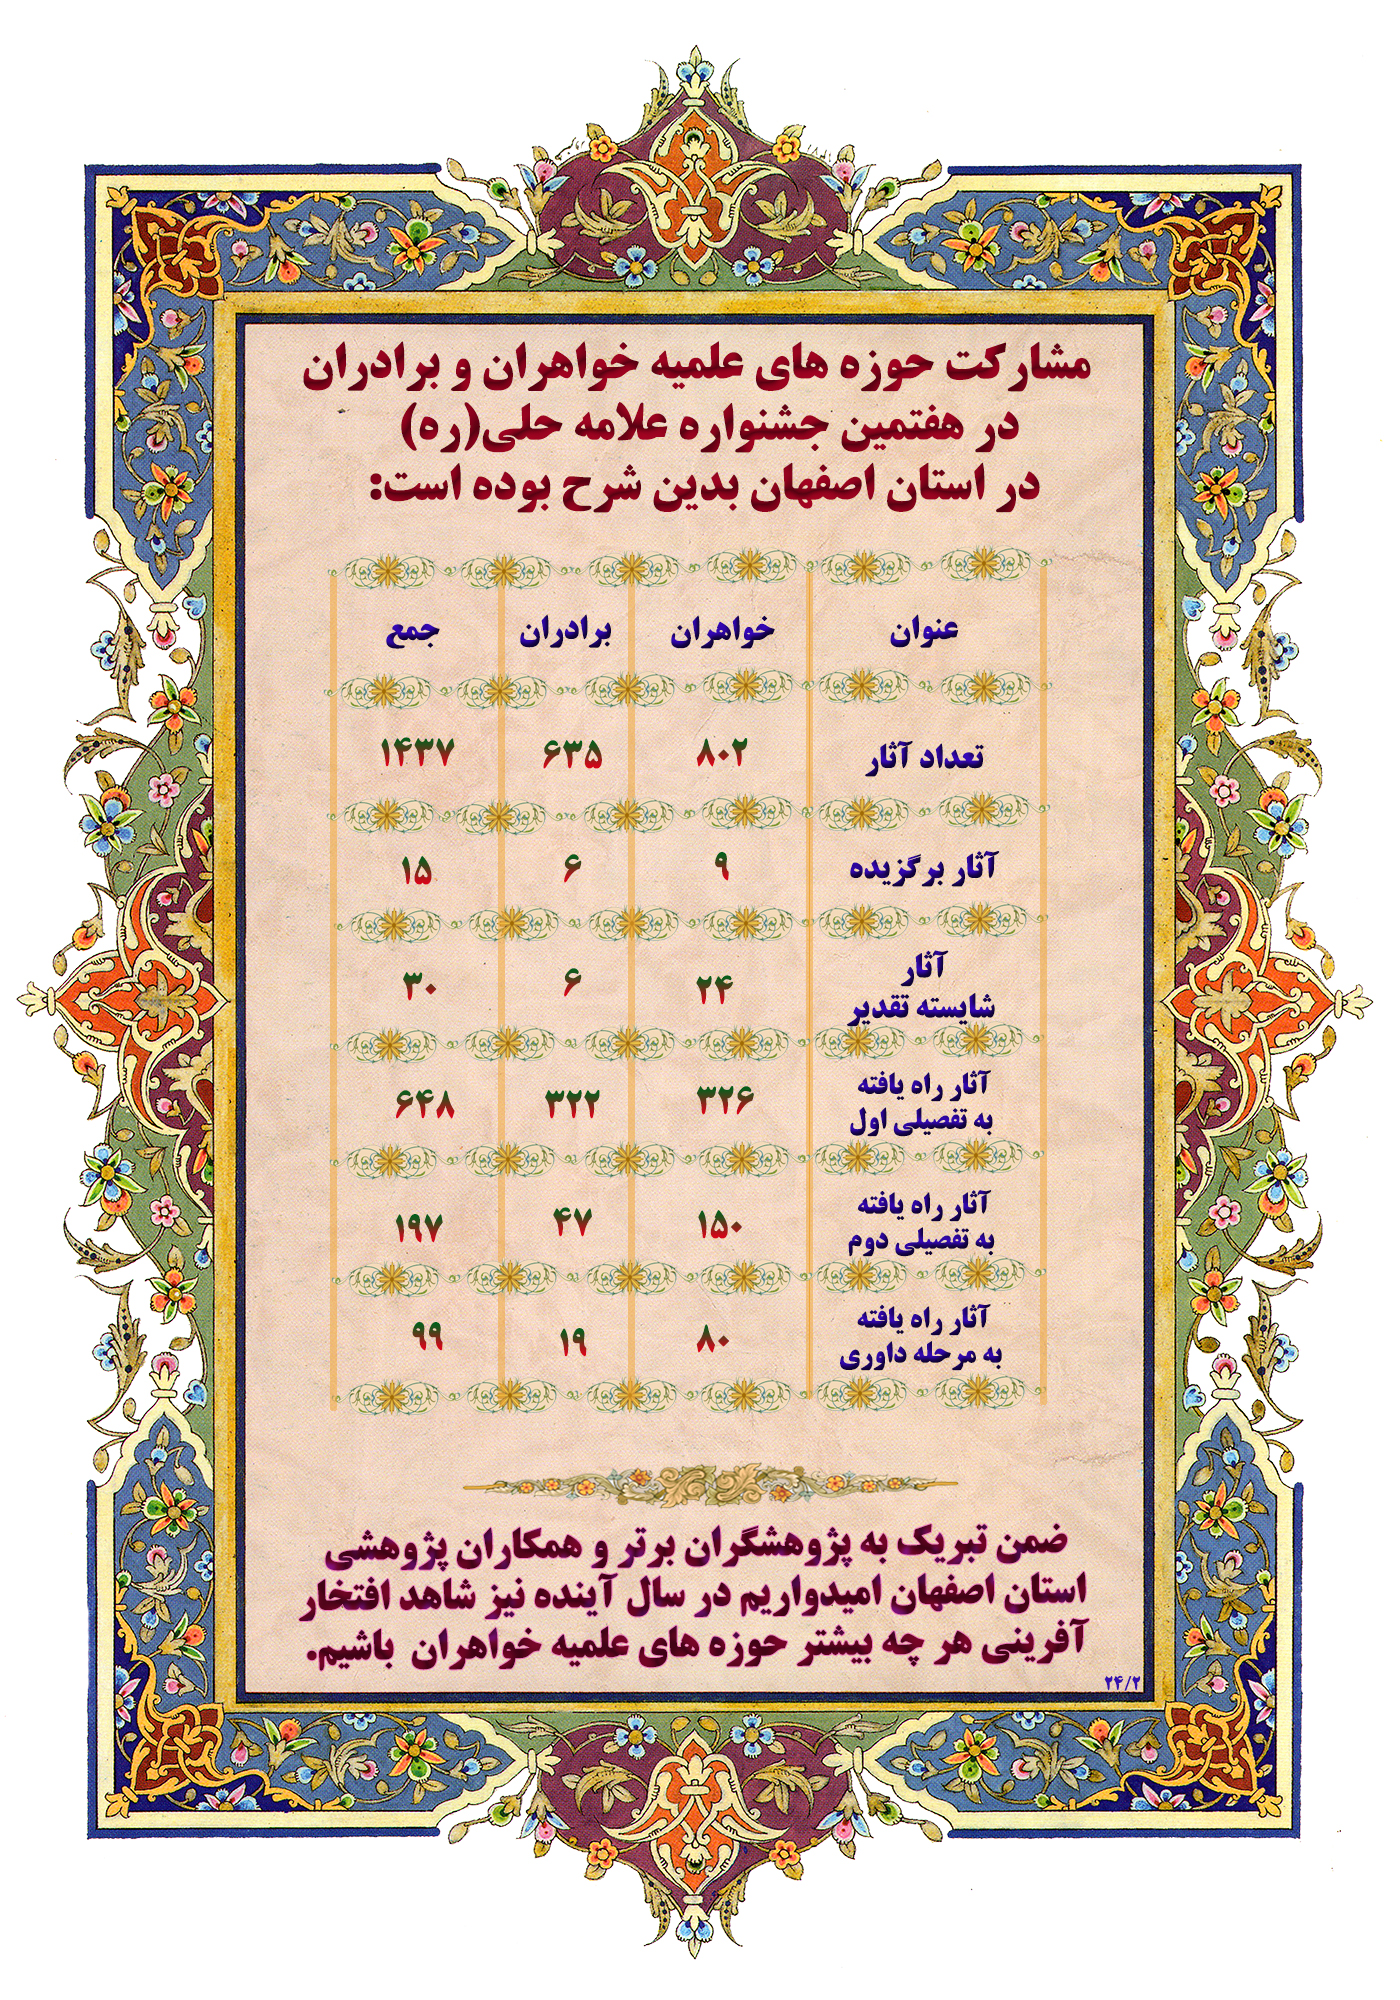 مشارکت حوزه های علمیه خواهران و برادران
در هفتمین جشنواره علامه حلی(ره)
در استان اصفهان بدین شرح بوده است:
عنوان خواهران برادران جمع
تعداد آثار ۸۰۲ ۶۳۵ ۱۴۳۷
آثار برگزیده ۹ ۶ ۱۵
آثار
شایسته تقدیر ۲۴ ۶ ۳۰
آثار راه یافته
به تفصیلی اول ۳۲۶ ۳۲۲ ۶۴۸
آثار راه یافته
به تفصیلی دوم ۱۵۰ ۴۷ ۱۹۷
آثار راه یافته
به مرحله داوری ۸۰ ۱۹ ۹۹
ضمن تبریک به پژوهشگران برتر و همکاران پژوهشی
استان اصفهان امیدواریم در سال آینده نیز شاهد افتخار
آفرینی هر چه بیشتر حوزه های علمیه خواهران باشیم.
۲۴/۲